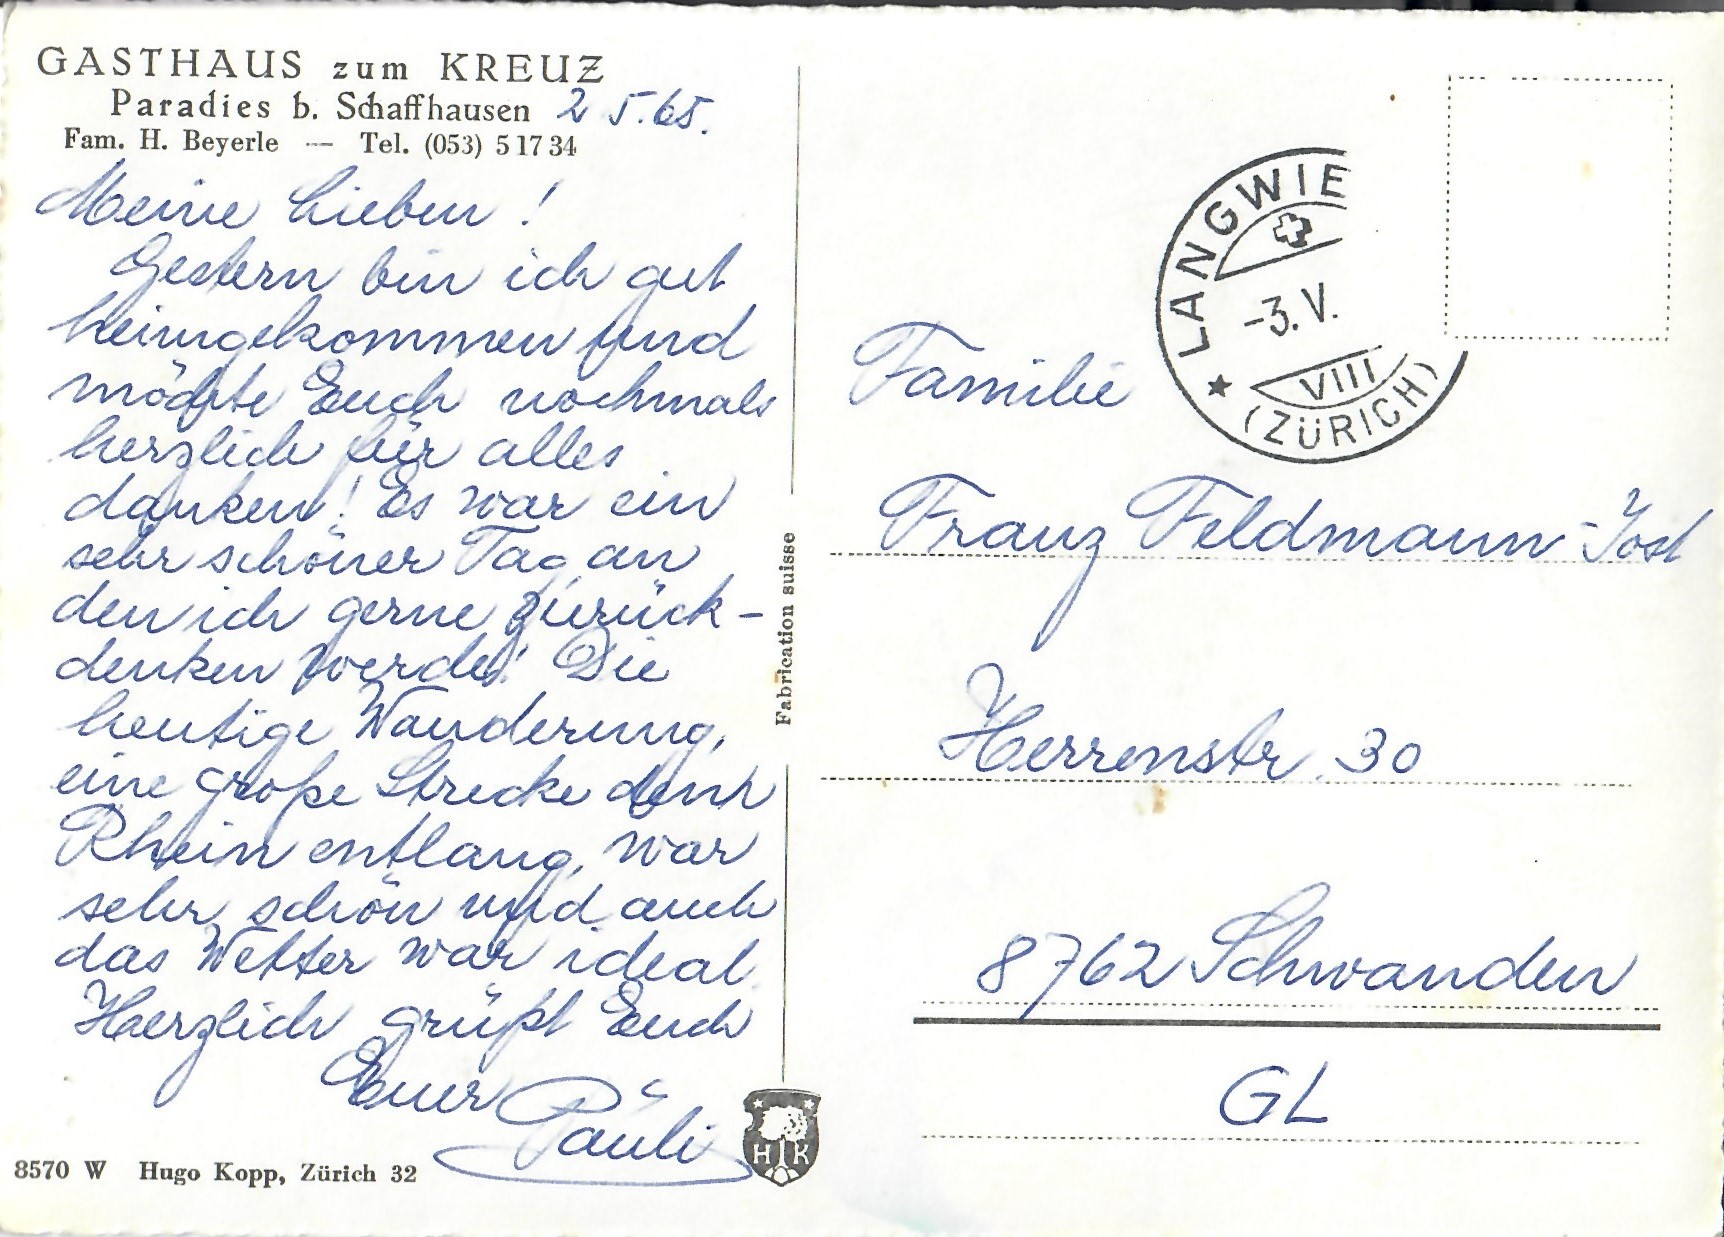 GASTHAUS zum KREUZ
Paradies b. Schaffhausen 2 5.65.
Fam. H. Beyerle — Tel. (053) 5 17 34
Meine Lieben!
Gestern bin ich gut
heimgekommen und
möchte Euch nochmals
herzlich für alles
danken! Es war ein
sehr schöner Tag, an
den ich gerne zurück-
denken werde! Die
heutige Wanderung,
eine große Strecke dem
Rhein entlang, war
sehr schön und auch
das Wetter war ideal.
Herzlich grüßt Euch
Euer Pauli
8570 W Hugo Kopp, Zürich 32
Fabrication suisse
H K
LANGWIE
-3. V.
VIII
(ZÜRICH)
Familie
Franz Feldmann-Jost
Herrenstr. 30
8762 Schwanden
GL